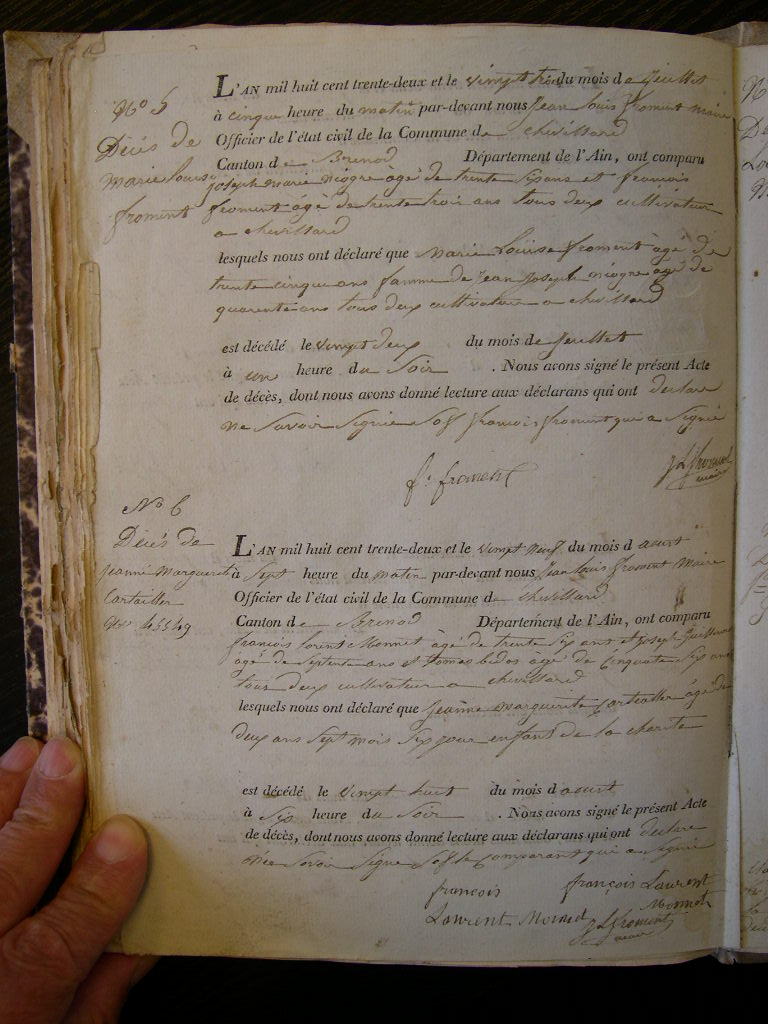 N.o 5
Décés de
marie louise
froment
L'AN mil huit cent trente-deux et le vingt trois du mois de Jeuillet
à cinque heure du matin par-devant nous Jean louis froment maire
Officier de l'état civil de la Commune de chevillard
Canton de Brenod Département de l'Ain, ont comparu
joseph marie niogre âgé de trente sixans et francois
froment âgé de trente trois ans tous deux cultivateur
a chevillard
lesquels nous ont déclaré que Marie Louise froment âgé de
trente cinque ans famme de jean Joseph niogre agé de
quarente ans tous deux cultivateur a chevillard
est décédé le vingt deux du mois de Jeuillet
à un heure du Soir . Nous avons signé le présent Acte
de décès, dont nous avons donné lecture aux déclarans qui ont declare
ne Savoir Signie Sof francois froment qui a Signié
f. froment
J L froment
maire
N.o 6
Décés de
jeanne Marguerite
Cartallier
N.o 45549
L'AN mil huit cent trente-deux et le vingt neuf du mois d aout
à Sept heure du matin par-devant nous Jean louis froment Maire
Officier de l'état civil de la Commune de chevillard
Canton de Brenod Département de l'Ain, ont comparu
francois lorent Monnet âgé de trente Six ans et Joseph
âgé de Septente ans et tomas âgé de Cinquate Six ans
tous deux cultivateur a chevillard
lesquels nous ont déclaré que Jeanne marguerite Cartallier âgé de
deux ans Sept mois Six jour enfant de la charite
est décédé le vingt huit du mois d aout
à Six heure du Soir . Nous avons signé le présent Acte
de décès, dont nous avons donné lecture aux déclarans qui ont declare
Savoir Signe Sof le Comparant qui a Signié
francois
Laurent Monnet
françois Laurent
Monnet
J L froment
maire